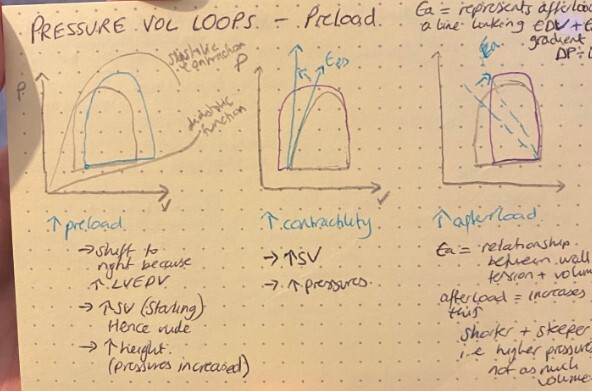 PRESSURE VOL LOOPS. - Preload.
Ea = represents afterload
a line linking EDV +
gradient
DP ÷
systolic
contraction
P
P
Ees
Ea.
diastolic
function
V
V
↑ preload.
→ shift to
right because
↑ LVEDV.
→ ↑SV (Starling)
Hence wide
→ ↑ height.
(pressures increased)
↑ contractility
→ ↑SV
→ ↑ pressures.
↑ afterload
Ea = relationship
between wall
tension + volum
afterload = increases
this
shorter + steeper
i.e higher pressure
not as much
volume